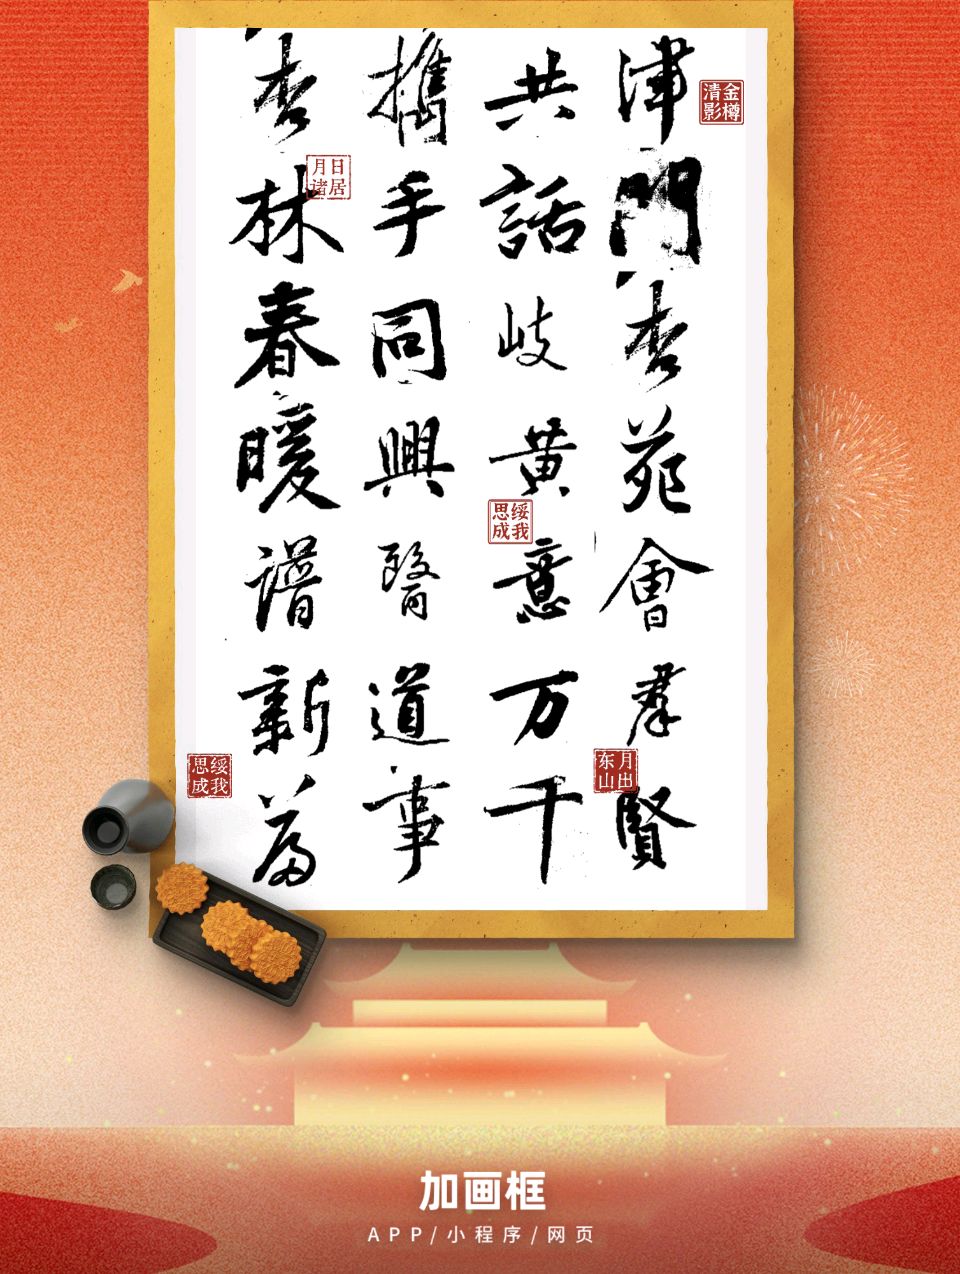 津門杏苑會羣賢
共話岐黄意万千
攜手同興醫道事
杏林春暖譜新篇
金樽清影
日居月诸
绥我思成
月出东山
绥我思成
加画框
APP/小程序/网页